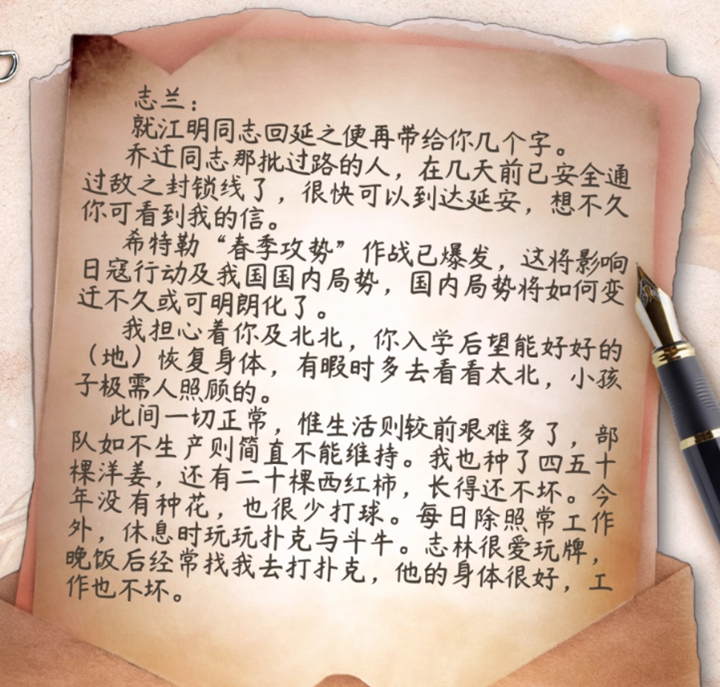 志兰：
就江明同志回延之便再带给你几个字。
乔迁同志那批过路的人，在几天前已安全通
过敌之封锁线了，很快可以到达延安，想不久
你可看到我的信。
希特勒“春季攻势”作战已爆发，这将影响
日寇行动及我国国内局势，国内局势将如何变
迁不久或可明朗化了。
我担心着你及北北，你入学后望能好好的
（地）恢复身体，有暇时多去看看太北，小孩
子极需人照顾的。
此间一切正常，惟生活则较前艰难多了，部
队如不生产则简直不能维持。我也种了四五十
棵洋姜，还有二十棵西红柿，长得还不坏。今
年没有种花，也很少打球。每日除照常工作
外，休息时玩玩扑克与斗牛。志林很爱玩牌，
晚饭后经常找我去打扑克，他的身体很好，工
作也不坏。